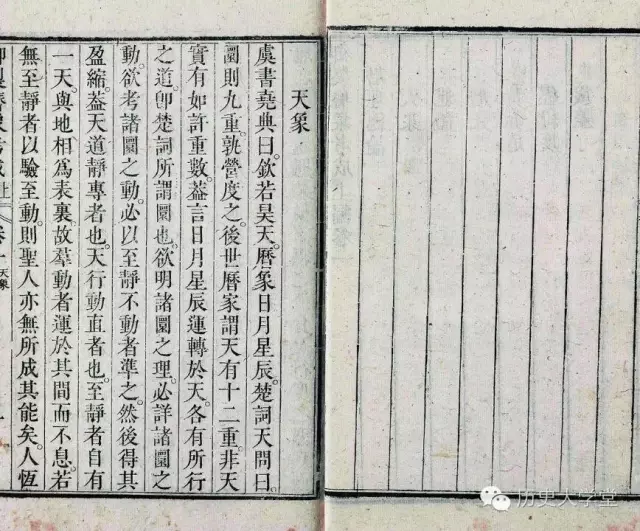 天象
虞書堯典曰。欽若昊天。曆象日月星辰。楚詞天問曰。
圜則九重。孰營度之。後世曆家謂天有十二重。非天
實有如許重數。葢言日月星辰運轉於天。各有所行
之道。卽楚詞所謂圜也。欲明諸圜之理。必詳諸圜之
動。欲考諸圜之動。必以至靜不動者準之。然後得其
盈縮。葢天道靜專者也。天行動直者也。至靜者自有
一天。與地相爲表裏。故羣動者運於其間而不息。若
無至靜者以驗至動。則聖人亦無所成其能矣。人恆
天象
历史大学堂